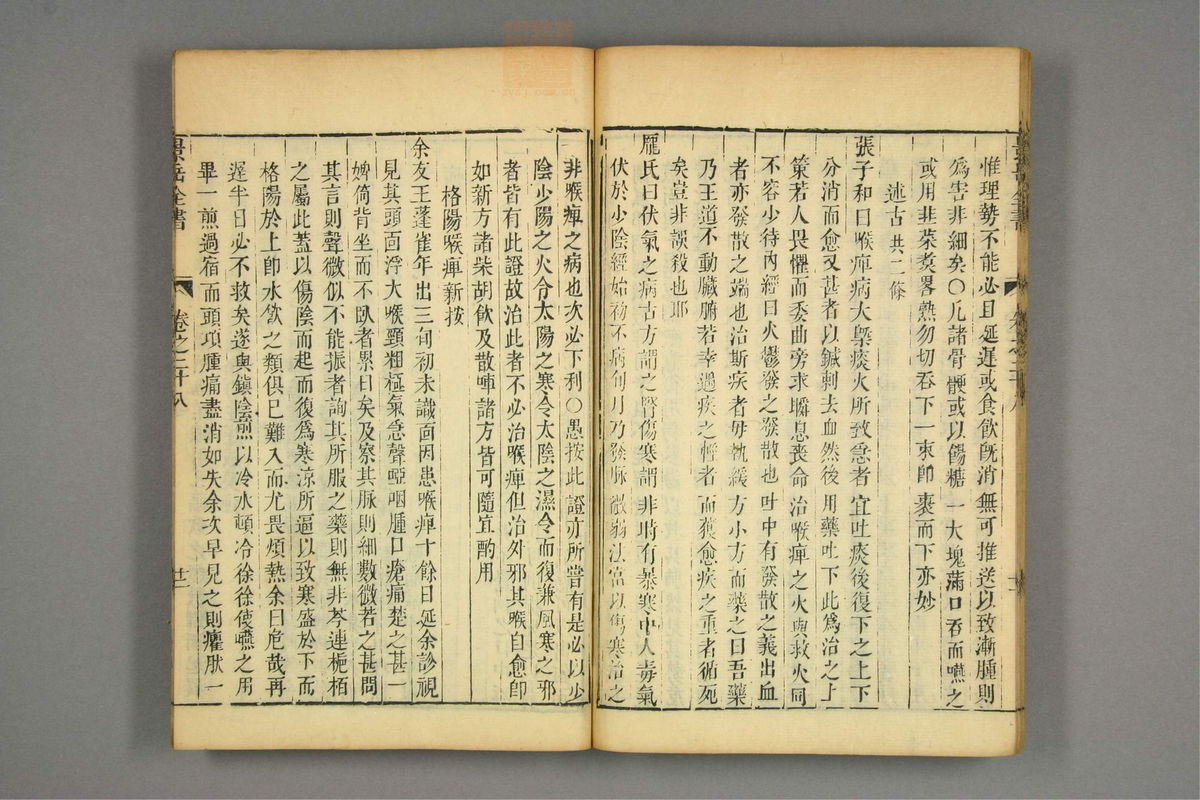 惟理勢不能必且延遲或食飲旣消無可推送以致漸腫則
爲害非細矣〇凡諸骨骾或以餳糖一大塊滿口吞而嚥之
或用韭菜煑畧熟勿切吞下一束卽裹而下亦妙
述古共二條
張子和曰喉痺病大槩痰火所致急者宜吐痰後復下之上下
分消而愈又甚者以鍼刺去血然後用藥吐下此爲治之上
策若人畏懼而委曲旁求瞬息喪命治喉痺之火與救火同
不容少待內經曰火鬱發之發散也吐中有發散之義出血
者亦發散之端也治斯疾者毋執緩方小方而藥之曰吾藥
乃王道不動臟腑若幸遇疾之輕者而獲愈疾之重者循死
矣豈非誤殺也耶
龐氏曰伏氣之病古方謂之腎傷寒謂非時有暴寒中人毒氣
伏於少陰經始初不病旬月乃發脉微弱法當以傷寒治之
非喉痺之病也次必下利〇愚按此證亦所嘗有是必以少
陰少陽之火令太陽之寒令太陰之濕令而復兼風寒之邪
者皆有此證故治此者不必治喉痺但治外邪其喉自愈卽
如新方諸柴胡飲及散啑諸方皆可隨宜酌用
格陽喉痺新按
余友王蓬雀年出三旬初未識面因患喉痺十餘日延余診視
見其頭面浮大喉頸粗極氣急聲啞咽腫口瘡痛楚之甚一
婢倚背坐而不臥者累日矣及察其脉則細數微若之甚問
其言則聲微似不能振者詢其所服之藥則無非芩連梔栢
之屬此蓋以傷陰而起而復爲寒涼所逼以致寒盛於下而
格陽於上卽水飲之類俱已難入而尤畏煩熱余曰危哉再
遲半日必不救矣遂與鎮陰煎以冷水頓冷徐徐使嚥之用
畢一煎過宿而頭項腫痛盡消如失余次早見之則癯肰一
景岳全書
卷之二十八
廿二